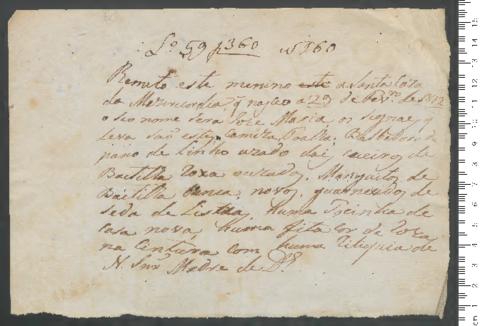 Lº 59 f 360 nº 360
Remeto este menino este a Santa Caza
da Mizericordia q nasceo a 29 de de 1812
o seo nome sera Joze Maria os signaes q
leva saõ estes Camiza
pano de linho uzado dai, coeiro de
Baetilha roxa uzado, Manguito de
Baetilha branca, novo, guarnecido de
seda de Listras, huma de
casa nova, huma fita cor de Roza
na Cintura com huma Reliquia de
N. Snrª Madre de Dˢ